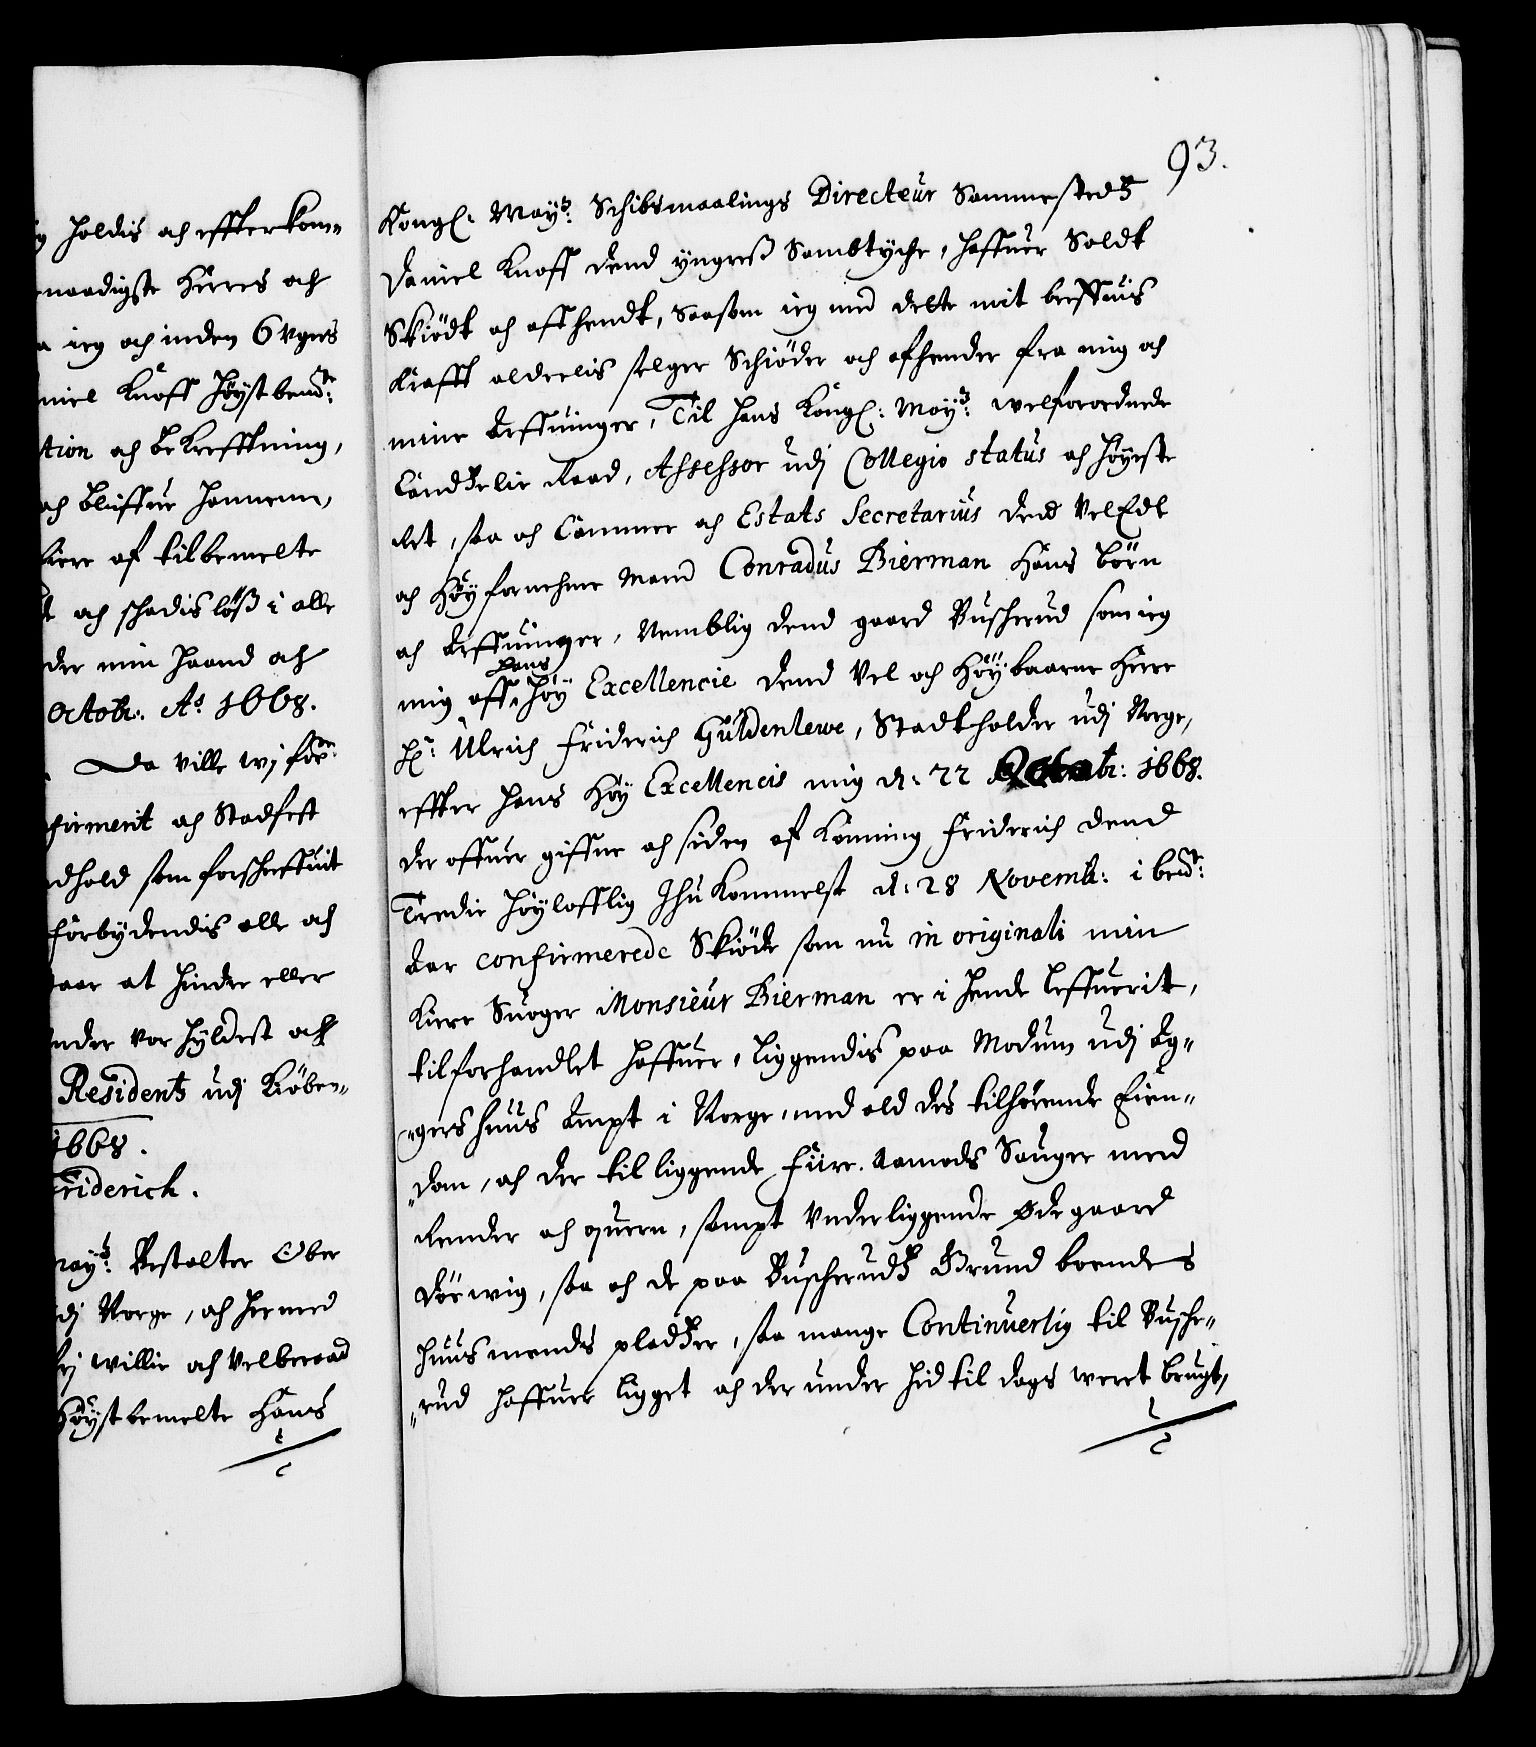 holdis och effterkom-
naadigste Herres och
ieg och inden 6 vgers
niel Knoff Høystbemte:
tion och bekrefftning,
och bliffue hannem,
kiere af tilbemelte
och schadisløß i alle
der min haand och
Octobr: Ao 1668.
Da ville wj for:
firmerit och Stadfest
dhold som forschreffuit
forbydendis alle och
aar at hindre eller
nder vor hyldest och
Residents udj Kiøben-
1668.
Friderich.
May: Bestalter Ober
dj Norge, och hermed
frj willie och velberaad
Høystbemelte Hans
93.
Kongl: Mayts: Schibsmaalings Directeur Sammestedtz
Daniel Knoff dend yngres Sambtyche, haffuer Soldt
Skiødt och affhendt, saasom ieg med dette mit breffuis
Krafft alderlis selger Schiøder och afhender fra mig och
mine Arffuinger, Til hans Kongl: Mayts: welforordnede
Candtzelie Raad, Assessor udj Collegio status och høyeste
Ret, saa och Cammer och Estats Secretarius dend VelEdle
och Høyfornehme Mand Conradus Bierman Hans børn
och Arffuinger, Nemblig dend gaard Buscherud som ieg
mig aff hans Høy Excellencie dend Vel och Høybaarne Herre
Hr: Ulrich Friderich Güldenlewe, Stadtholder udj Norge,
effter hans Høy Excellencis mig d: 22 Octobr: 1668.
der offuer giffne och siden af Konning Friderich dend
Tredie høylofflig Ihukommelse d: 28 Novemb: i bemte:
Aar confirmerede Skiøde som nu in originali min
Kiere Suoger Monsieur Bierman er i hende leffuerit,
tilforhandlet haffuer, liggendis paa Modum udj Ag-
gershuus Ampt i Norge, med ald des tilhørende Eien-
dom, och der til liggende fiire Aamods Sauger med
Render och quern, sampt underliggende Ødegaard
Dørwig, saa och de paa Buscherudtz Grund boendes
huusmends pladtzer, saa mange Continuerlig til Busche-
rud haffuer ligget och der under hid til dags weret brugt,